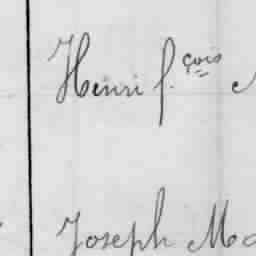 Henri f.çois
Joseph